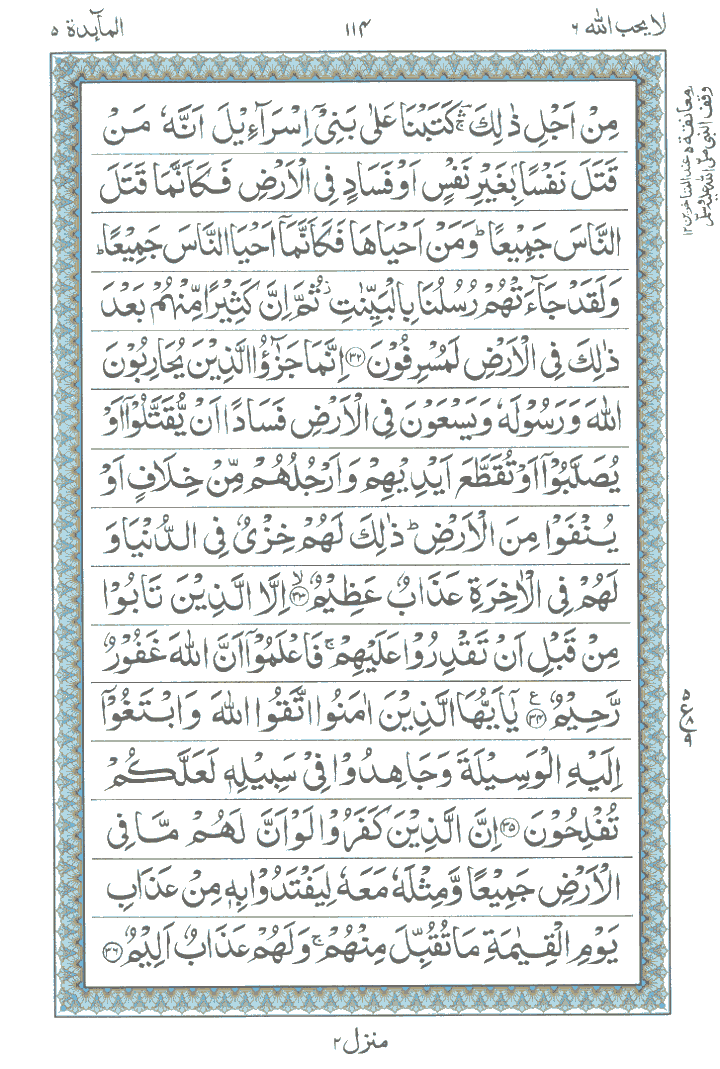 لا يحب الله ٦
١١٤
المآىِٕدة ٥
مِنْ اَجْلِ ذٰلِكَ ۛۚ كَتَبْنَا عَلٰى بَنِىْۤ اِسْرَآءِيْلَ اَنَّهٗ مَنْ
قَتَلَ نَفْسًۢا بِغَيْرِ نَفْسٍ اَوْ فَسَادٍ فِى الْاَرْضِ فَكَاَنَّمَا قَتَلَ
النَّاسَ جَمِيْعًا ؕ وَمَنْ اَحْيَاهَا فَكَاَنَّمَاۤ اَحْيَا النَّاسَ جَمِيْعًا ؕ
وَلَقَدْ جَآءَتْهُمْ رُسُلُنَا بِالْبَيِّنٰتِ ؗ ثُمَّ اِنَّ كَثِيْرًا مِّنْهُمْ بَعْدَ
ذٰلِكَ فِى الْاَرْضِ لَمُسْرِفُوْنَ ﴿٣٢﴾ اِنَّمَا جَزٰٓؤُا الَّذِيْنَ يُحَارِبُوْنَ
اللهَ وَرَسُوْلَهٗ وَيَسْعَوْنَ فِى الْاَرْضِ فَسَادًا اَنْ يُّقَتَّلُوْۤا اَوْ
يُصَلَّبُوْۤا اَوْ تُقَطَّعَ اَيْدِيْهِمْ وَاَرْجُلُهُمْ مِّنْ خِلَافٍ اَوْ
يُنْفَوْا مِنَ الْاَرْضِ ؕ ذٰلِكَ لَهُمْ خِزْىٌ فِى الدُّنْيَا وَ
لَهُمْ فِى الْاٰخِرَةِ عَذَابٌ عَظِيْمٌ ۙ﴿٣٣﴾ اِلَّا الَّذِيْنَ تَابُوْا
مِنْ قَبْلِ اَنْ تَقْدِرُوْا عَلَيْهِمْ ۚ فَاعْلَمُوْۤا اَنَّ اللهَ غَفُوْرٌ
رَّحِيْمٌ ﴿٣٤﴾ ع يٰۤاَيُّهَا الَّذِيْنَ اٰمَنُوا اتَّقُوا اللهَ وَابْتَغُوْۤا
اِلَيْهِ الْوَسِيْلَةَ وَجَاهِدُوْا فِىْ سَبِيْلِهٖ لَعَلَّكُمْ
تُفْلِحُوْنَ ﴿٣٥﴾ اِنَّ الَّذِيْنَ كَفَرُوْا لَوْ اَنَّ لَهُمْ مَّا فِى
الْاَرْضِ جَمِيْعًا وَّمِثْلَهٗ مَعَهٗ لِيَفْتَدُوْا بِهٖ مِنْ عَذَابِ
يَوْمِ الْقِيٰمَةِ مَا تُقُبِّلَ مِنْهُمْ ۚ وَلَهُمْ عَذَابٌ اَلِيْمٌ ﴿٣٦﴾
معانقة ٥ عند المتاخرين ١٢
وقف النبي صلى الله عليه وسلم
ع
منزل ٢